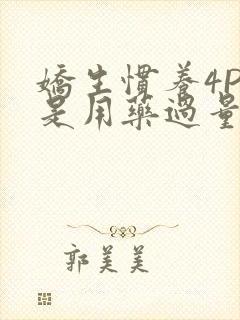 嬌生慣養4P
是用藥過量
郭美美